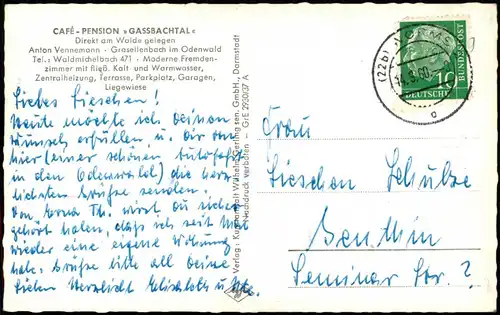 CAFÉ-PENSION »GASSBACHTAL«
Direkt am Walde gelegen
Anton Vennemann - Grasellenbach im Odenwald
Tel.: Waldmichelbach 471 - Moderne Fremden-
zimmer mit fließ. Kalt- und Warmwasser,
Zentralheizung, Terrasse, Parkplatz, Garagen,
Liegewiese
Liebes Lieschen!
Heute möchte ich Deinen
Wunsch erfüllen, u. Dir von
hier (einer schönen Autofahrt
in den Odenwald) die herz-
lichsten Grüße senden.
Von Erna Th. wirst Du sicher
gehört haben, daß ich seit Mai
wieder eine eigene Wohnung
habe. Grüße bitte all Deine
Lieben Herzlichst Elisabeth u.
Verlag: Kunstanstalt Wilhelm Gerling sen. GmbH., Darmstadt
Nachdruck verboten - GrE 2930/37 A
(22b)
60
DEUTSCHE BUNDESPOST
10
Frau
Lieschen Schulze
Genthin
Seminar Str. ?